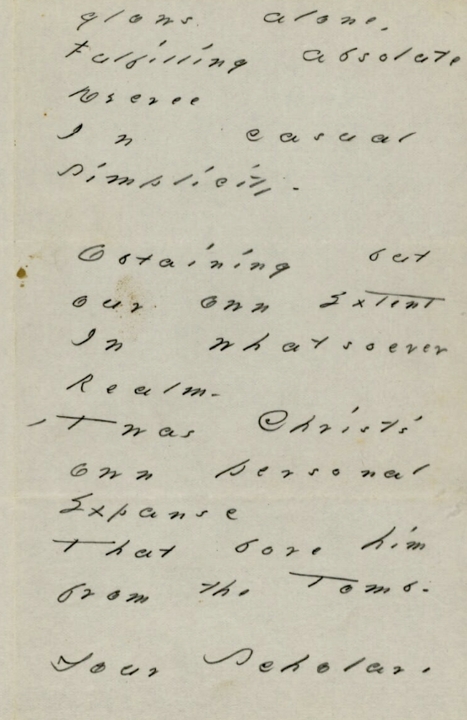 glows alone,
Fulfilling absolute
Decree
In casual
Simplicity -
Obtaining but
our own Extent
In whatsoever
Realm -
'Twas Christ's
own personal
Expanse
That bore him
from the Tomb -
Your Scholar.